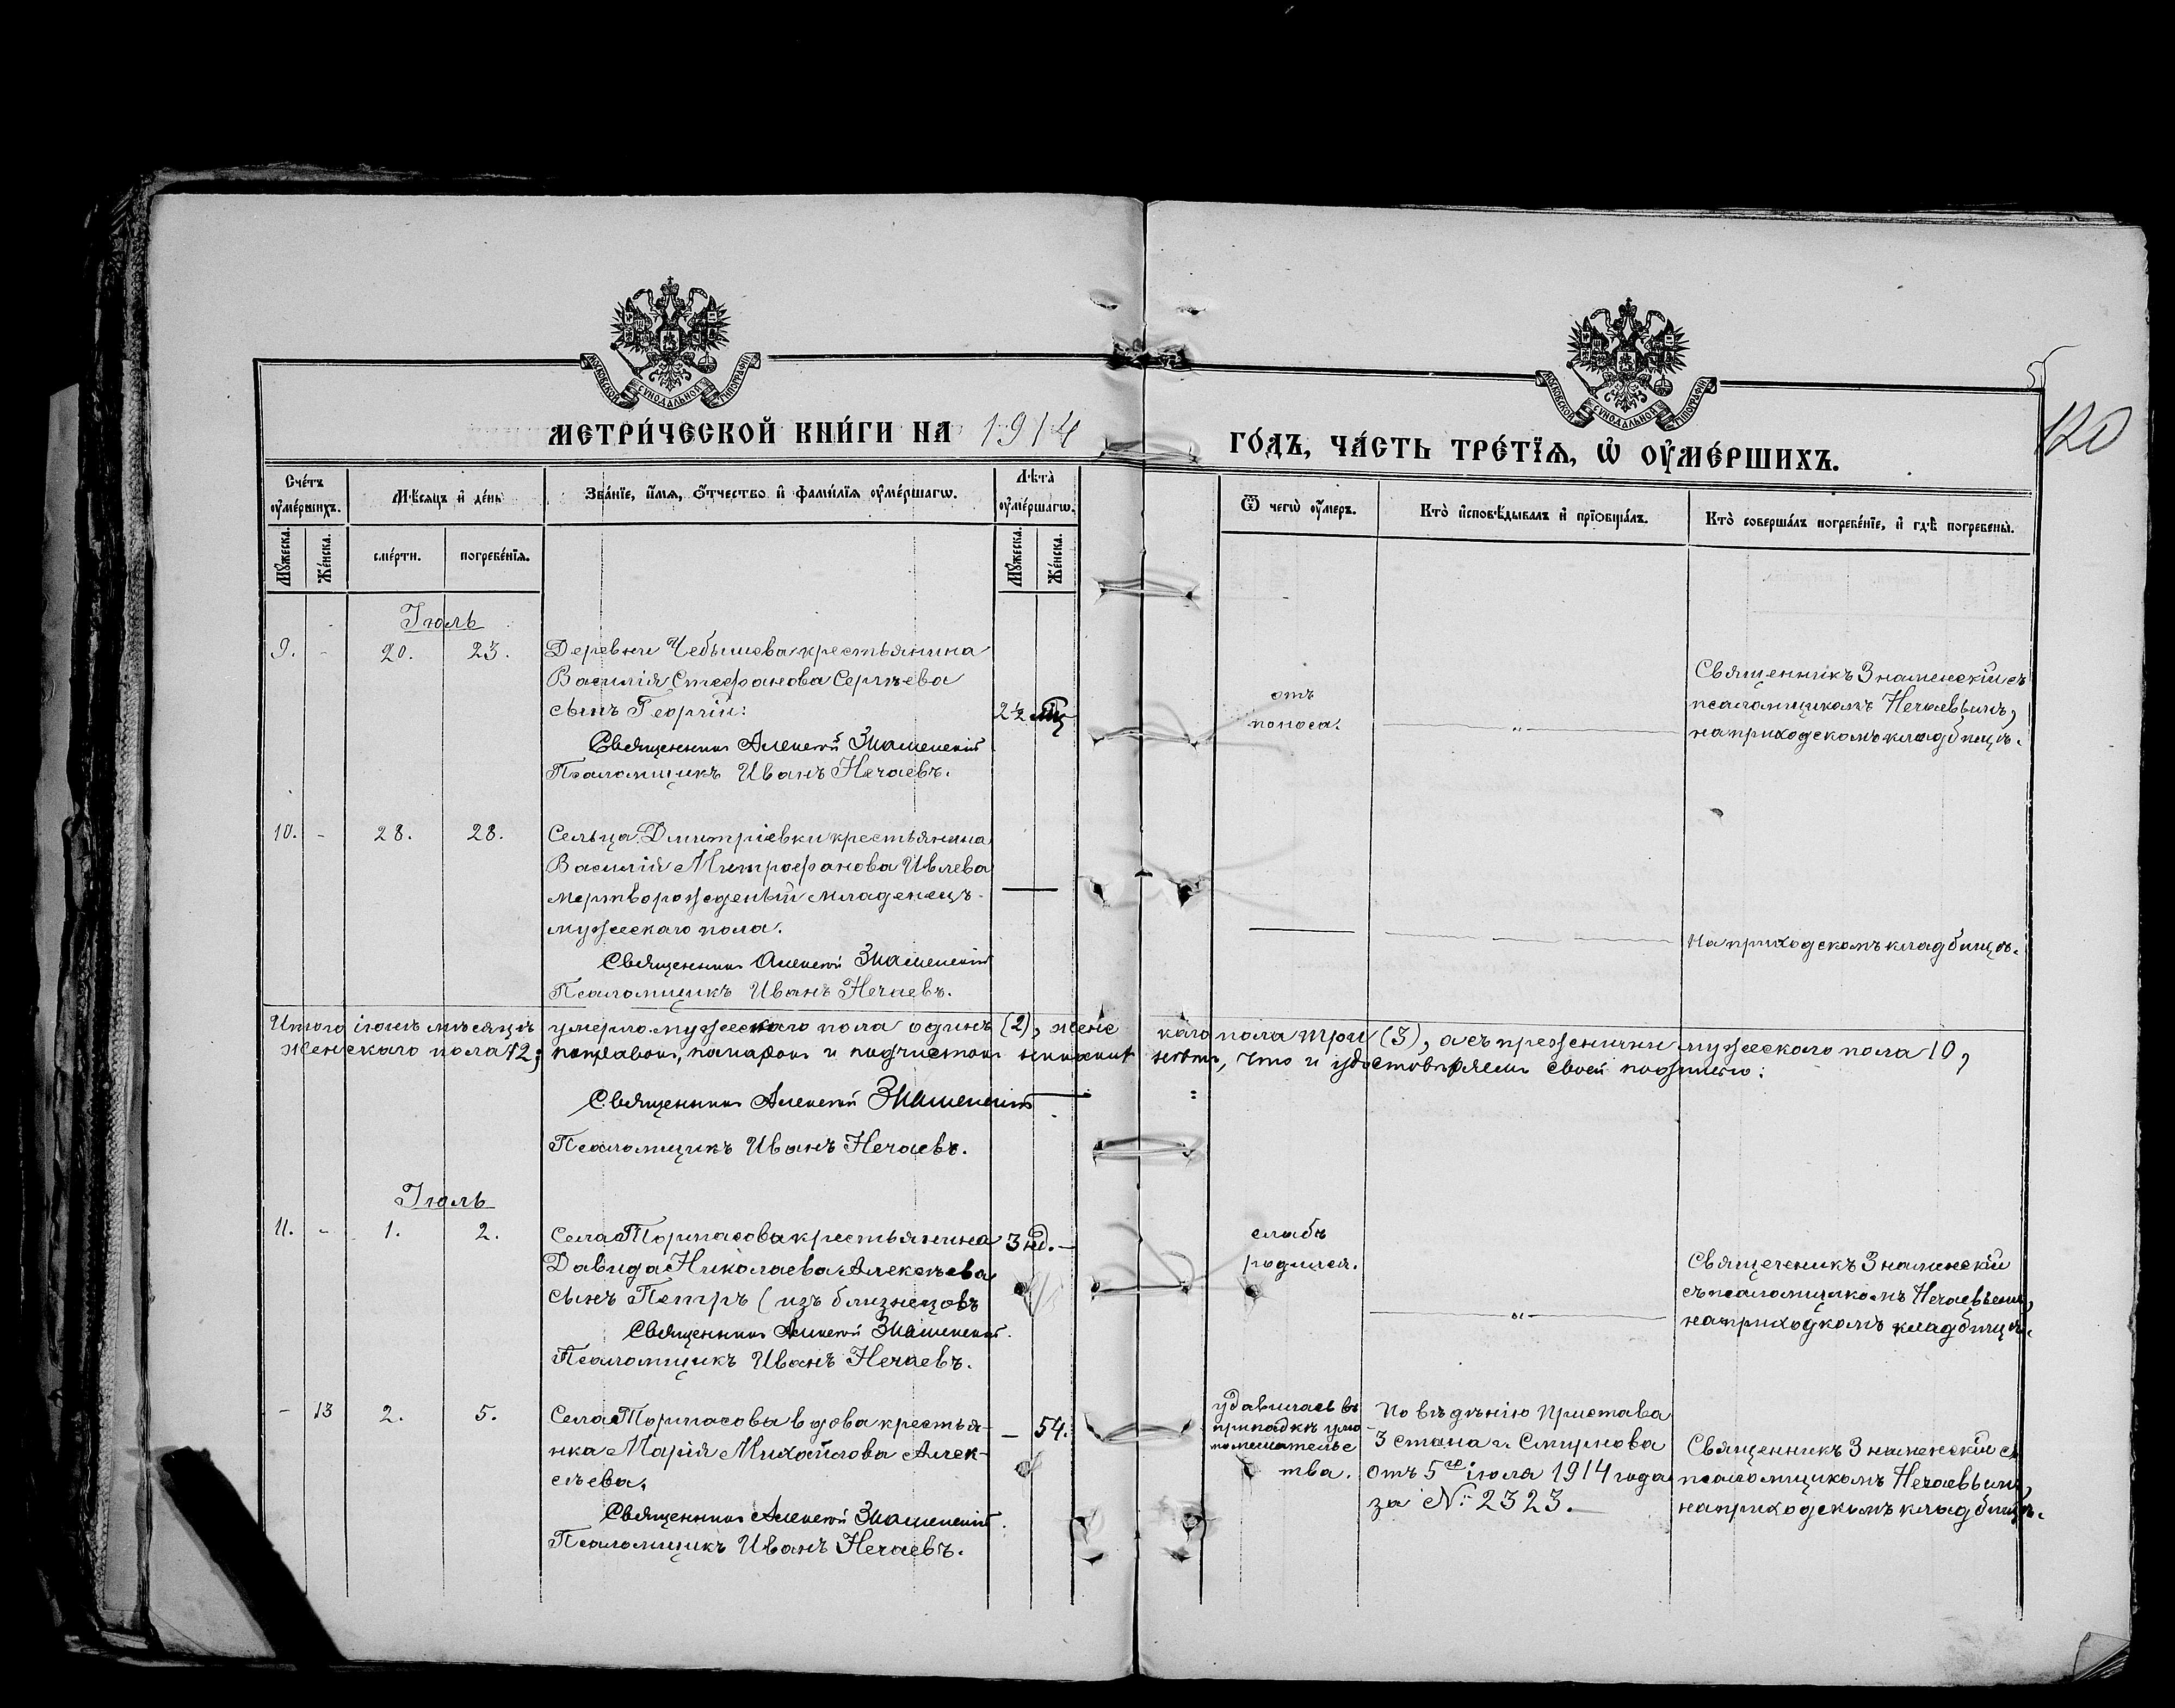 МОСКОВСКОЙ СѴНОДАЛЬНОЙ ТИПОГРАФІИ
МОСКОВСКОЙ СѴНОДАЛЬНОЙ ТИПОГРАФІИ
МЕТРИ́ЧЕСКОЙ КНИ́ГИ НА 1914
ГО́ДЪ, ЧА́СТЬ ТРЕ́ТЇѦ, Ѡ҆ ОУ҆МЕ́РШИХЪ.
120
Сче́тъ оу҆ме́ршихъ.
Мѣ́сяцъ и҆ де́нь
Зва́нїе, и҆́мѧ, ѻ҆́тчество и҆ фами́лїѧ оу҆ме́ршагѡ.
Лѣ́та оу҆ме́ршагѡ.
Ѿ чегѡ̀ оу҆́меръ.
Кто̀ и҆сповѣ́дывалъ и҆ прїѡбща́лъ.
Кто̀ соверша́лъ погребе́нїе, и҆ гдѣ̀ погребены̀.
Мꙋ́жеска.
Же́нска.
сме́рти.
погребе́нїѧ.
Мꙋ́жеска.
Же́нска.
Іюль
9. - 20. 23. Деревни Чебышева крестьянина
Василія Стефанова Сергѣева
сынъ Георгій: 2½ мц
Священникъ Алексѣй Знаменскій
Псаломщикъ Иванъ Нечаевъ.
отъ
поноса.
Священникъ Знаменскій съ
псаломщикомъ Нечаевымъ,
на приходскомъ кладбищѣ.
10. - 28. 28. Сельца Дмитріевки крестьянина
Василія Митрофанова Ивлева
мертворожденый младенецъ
мужескаго пола.
Священникъ Алексѣй Знаменскій
Псаломщикъ Иванъ Нечаевъ.
На приходскомъ кладбищѣ.
Итого іюнѣ мѣсяцѣ умерло мужескаго пола одинъ (2), женс каго пола три (3), а съ прежними мужескаго пола 10,
женскаго пола 12; поправокъ, помарокъ и подчистокъ никакихъ нѣтъ, что и удостовѣряемъ своей подписью:
Священникъ Алексѣй Знаменскій
Псаломщикъ Иванъ Нечаевъ.
Іюль
11. - 1. 2. Села Торпасова крестьянина 3 нд. -
Давида Николаева Алексѣева
сынъ Петръ (изъ близнецовъ
Священникъ Алексѣй Знаменскій.
Псаломщикъ Иванъ Нечаевъ.
слабъ
родился.
Священникъ Знаменскій
съ псаломщикомъ Нечаевымъ,
на приходкомъ кладбищѣ.
- 13 2. 5. Села Торпасова вдова крестья- - 54.
нка Марія Михайлова Алек-
сѣева.
Священникъ Алексѣй Знаменскій.
Псаломщикъ Иванъ Нечаевъ.
удавилась въ
припадкѣ умо
помешательс
тва.
По вѣдѣнію Пристава
3 стана г. Смирнова
отъ 5го іюля 1914 года
за № 2323.
Священникъ Знаменскій съ
псаломщикомъ Нечаевымъ,
на приходскомъ кладбищѣ.